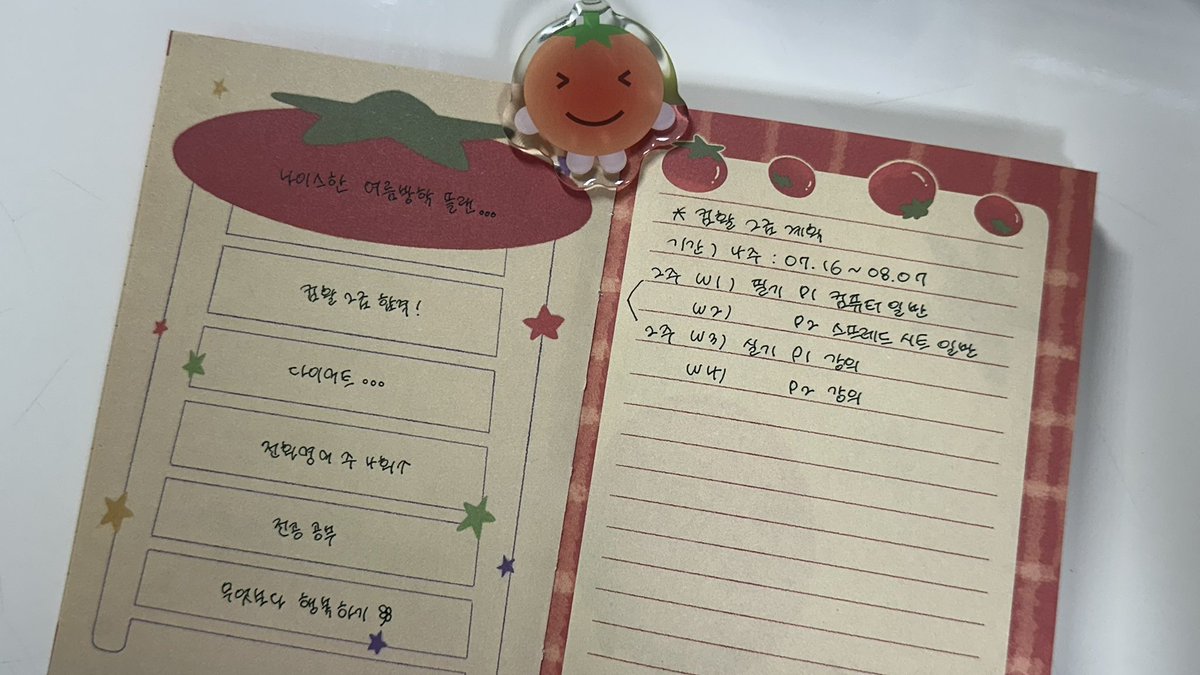 나이스한 여름방학 플랜...
컴활 2급 합격!
다이어트...
전화영어 주 4회↑
전공 공부
무엇보다 행복하기
* 컴활 2급 계획
기간) 4주 : 07.16 ~ 08.07
2주 W1) 필기 P1 컴퓨터 일반
W2) P2 스프레드 시트 일반
2주 W3) 실기 P1 강의
W4) P2 강의